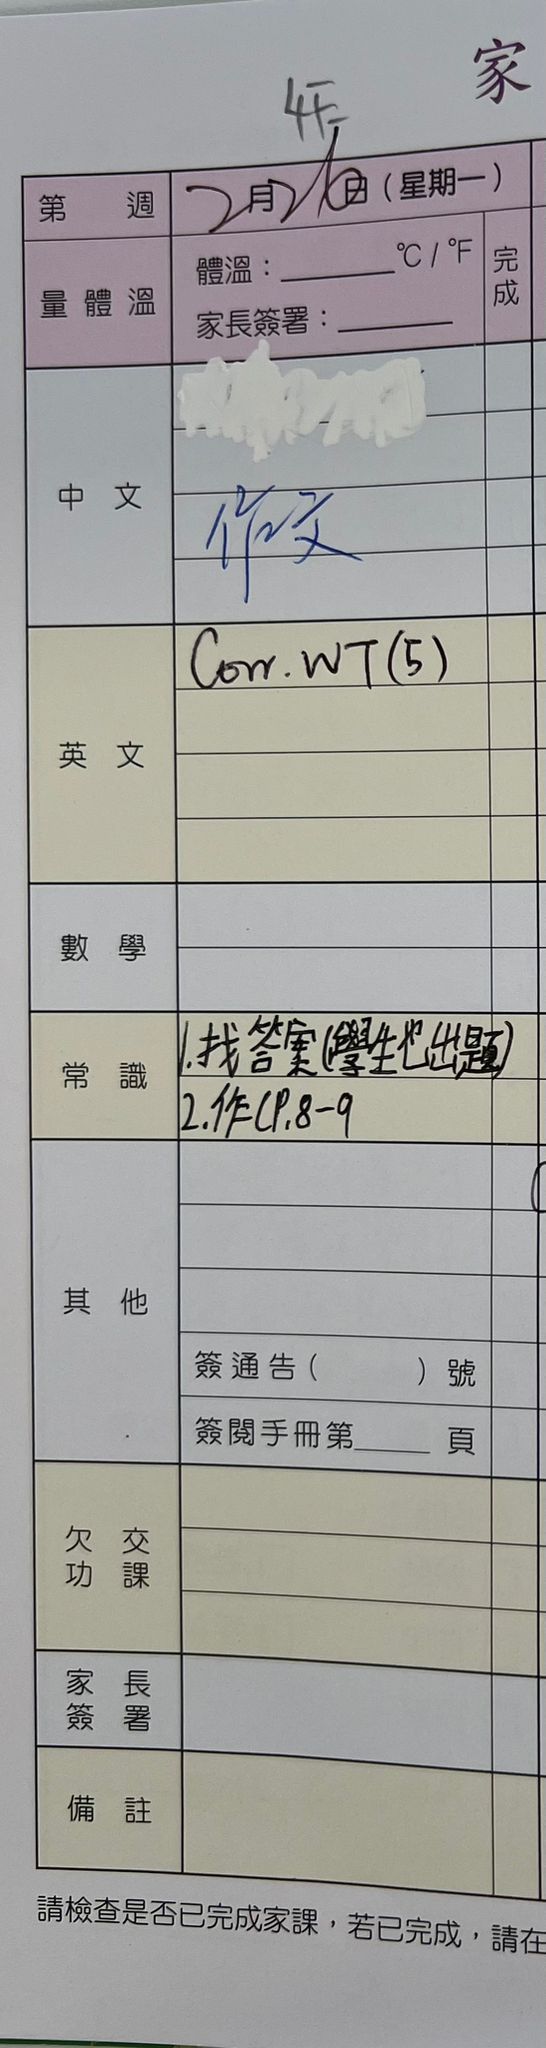 家
4F
第 週 2月26日(星期一)
量體溫 體溫:______°C / °F 完成
家長簽署:______
中 文
作文
英 文 Corr. WT(5)
數 學
常 識 1.找答案(學生也出題)
2.作 P.8-9
其 他
簽通告( )號
簽閱手冊第____頁
欠交功課
家長簽署
備 註
請檢查是否已完成家課,若已完成,請在